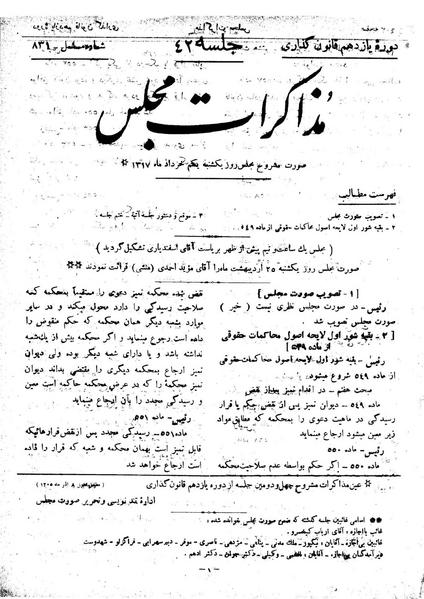 دورهٔ یازدهم قانون گذاری
جلسه ۴۲
شماره مسلسل ۸۳۱
مذاکرات مجلس
صورت مشروح مجلس روز یکشنبه یکم خرداد ماه ۱۳۱۷ *
فهرست مطالب
۱ - تصویب صورت مجلس
۲ - بقیه شور اول لایحه اصول محاکمات حقوقی از ماده ۵۴۹
۳ - موقع و دستور جلسه آتیه - ختم جلسه
( مجلس یک ساعت و نیم پیش از ظهر بریاست آقای اسفندیاری تشکیل گردید )
صورت مجلس روز یکشنبه ۲۵ اردیبهشت ماه را آقای مؤید احمدی (منشی) قرائت نمودند **
[ ۱ - تصویب صورت مجلس ]
رئیس - در صورت مجلس نظری نیست ( خیر )
صورت مجلس تصویب شد .
[ ۲ - بقیه شور اول لایحه اصول محاکمات حقوقی
از ماده ۵۴۹ ]
رئیس - بقیه شور اول لایحه اصول محاکمات حقوقی
از ماده ۵۴۹ شروع میشود .
مبحث هفتم - در اقدام تمیز بعد از نقض
ماده ۵۴۹ - دیوان تمیز پس از نقض حکم یا قرار
رسیدگی در ماهیت دعوی را بمحکمه که مطابق مواد
زیر معین میشود ارجاع مینماید
رئیس - ماده ۵۵۰
ماده ۵۵۰ - اگر حکم بواسطه عدم صلاحیت محکمه
نقض شده محکمه تمیز دعوی را مستقیماً بمحکمه که
صلاحیت رسیدگی را دارد محول میکند و در سایر
موارد بشعبه دیگر همان محکمه که حکم منقوض را
داده است رجوع مینماید و اگر محکمه بیش از یک شعبه
نداشته باشد و یا دارای شعبه دیگر بوده ولی دیوان
تمیز ارجاع بمحکمه دیگری را مقتضی بداند دیوان
تمیز محکمه را که در عرض محکمه حاکمه است معین
و رسیدگی مجدد را بآن ارجاع مینماید
رئیس - ماده ۵۵۱
ماده ۵۵۱ - رسیدگی مجدد پس از نقض قرارهائیکه
قابل تمیز است بهمان محکمه و شعبه که قرار را داده
است ارجاع خواهد شد
* عین مذاکرات مشروح چهل و دومین جلسه از دوره یازدهم قانون گذاری
اداره تند نویسی و تحریر صورت مجلس
** اسامی غائبین جلسه گذشته که ضمن صورت مجلس خوانده شده :
غائب با اجازه - آقای ارباب کیخسرو .
- ۱ -